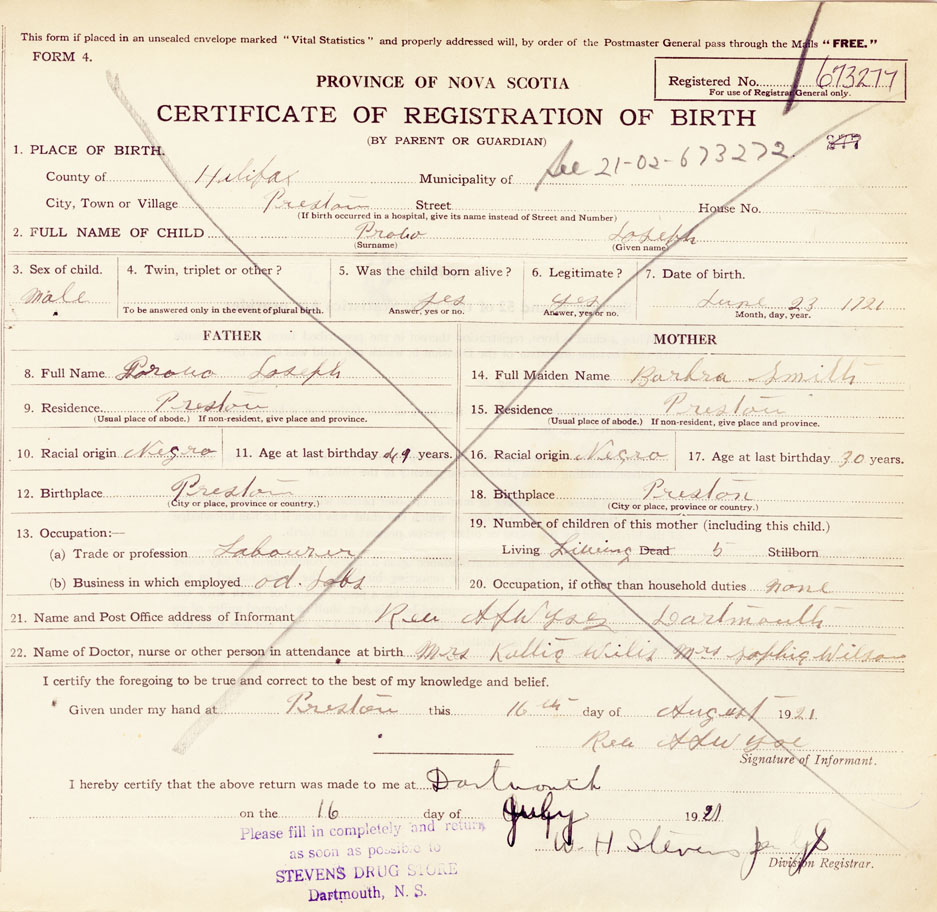 This form if placed in an unsealed envelope marked "Vital Statistics" and properly addressed will, by order of the Postmaster General pass through the Mails "FREE."
FORM 4.
PROVINCE OF NOVA SCOTIA
Registered No. 673277
For use of Registrar General only.
CERTIFICATE OF REGISTRATION OF BIRTH
(BY PARENT OR GUARDIAN)
277
See 21-02-673272.
1. PLACE OF BIRTH.
County of Halifax Municipality of
City, Town or Village Preston Street House No.
(If birth occurred in a hospital, give its name instead of Street and Number)
2. FULL NAME OF CHILD Provo Joseph
(Surname) (Given name)
3. Sex of child. 4. Twin, triplet or other? 5. Was the child born alive? 6. Legitimate? 7. Date of birth.
Male yes yes June 23 1921
To be answered only in the event of plural birth. Answer, yes or no. Answer, yes or no. Month, day, year.
FATHER MOTHER
8. Full Name Provo Joseph 14. Full Maiden Name Barbra Smith
9. Residence. Preston 15. Residence Preston
(Usual place of abode.) If non-resident, give place and province. (Usual place of abode.) If non-resident, give place and province.
10. Racial origin Negro 11. Age at last birthday 49 years. 16. Racial origin Negro 17. Age at last birthday 30 years.
12. Birthplace Preston 18. Birthplace Preston
(City or place, province or country.) (City or place, province or country.)
13. Occupation:— 19. Number of children of this mother (including this child.)
(a) Trade or profession Labourer Living Liveing Dead 5 Stillborn
(b) Business in which employed od. Jobs 20. Occupation, if other than household duties none
21. Name and Post Office address of Informant Rev Dartmouth
22. Name of Doctor, nurse or other person in attendance at birth Mrs Kattie Willis Mrs Sophie Wilson
I certify the foregoing to be true and correct to the best of my knowledge and belief.
Given under my hand at Preston this 16th day of August 1921
Rev
Signature of Informant.
I hereby certify that the above return was made to me at Dartmouth
on the 16 day of July 1921
W. H Stevens
Division Registrar.
Please fill in completely and return
as soon as possible to
STEVENS DRUG STORE
Dartmouth, N. S.